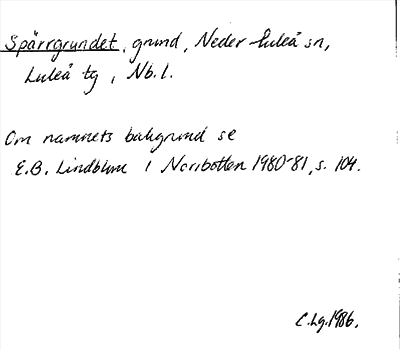 Spärrgrundet, grund, Neder-Luleå sn,
Luleå tg, Nb. l.
Om namnets bakgrund se
E.B. Lindblom i Norrbotten 1980-81, s. 104.
C.Lg. 1986.